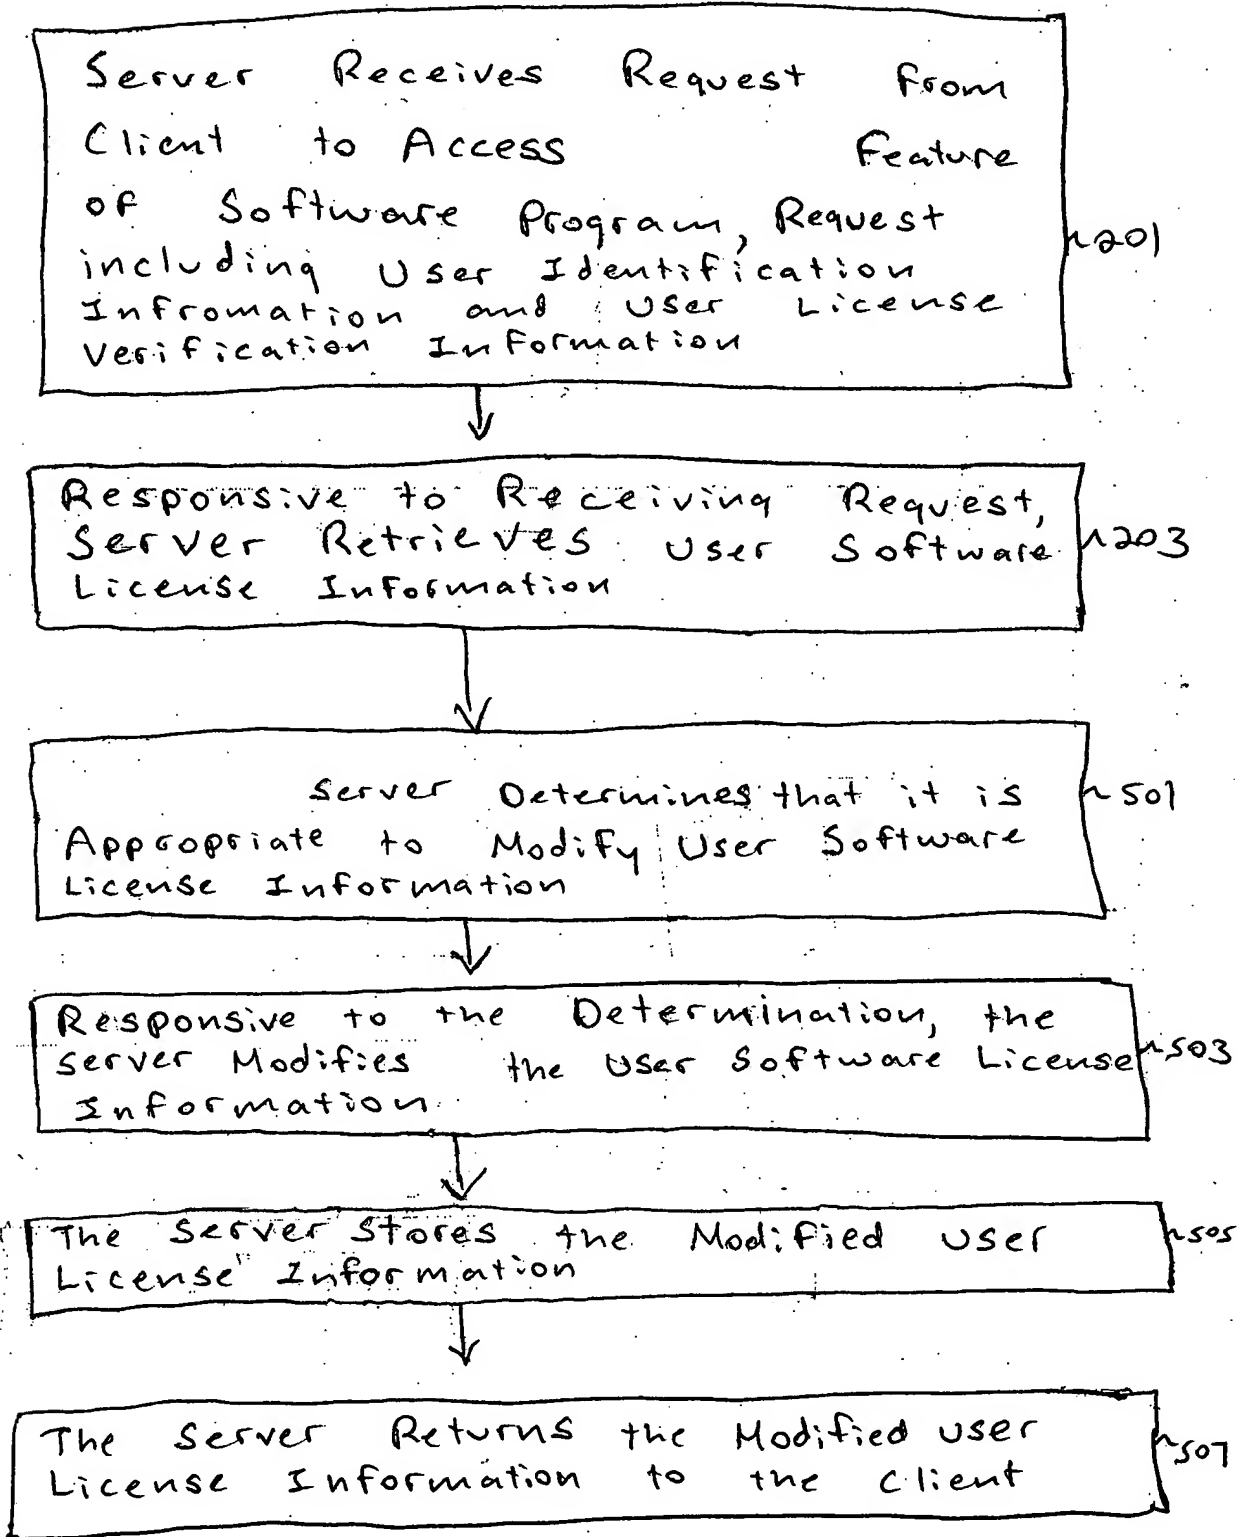 Server Receives Request from
Client to Access Feature
of Software Program, Request
including User Identification
Infromation and User License
Verification Information
201
Responsive to Receiving Request,
Server Retrieves User Software
License Information
203
Server Determines that it is
Appropriate to Modify User Software
License Information
501
Responsive to the Determination, the
Server Modifies the User Software License
Information
503
The Server Stores the Modified User
License Information
505
The Server Returns the Modified User
License Information to the Client
507